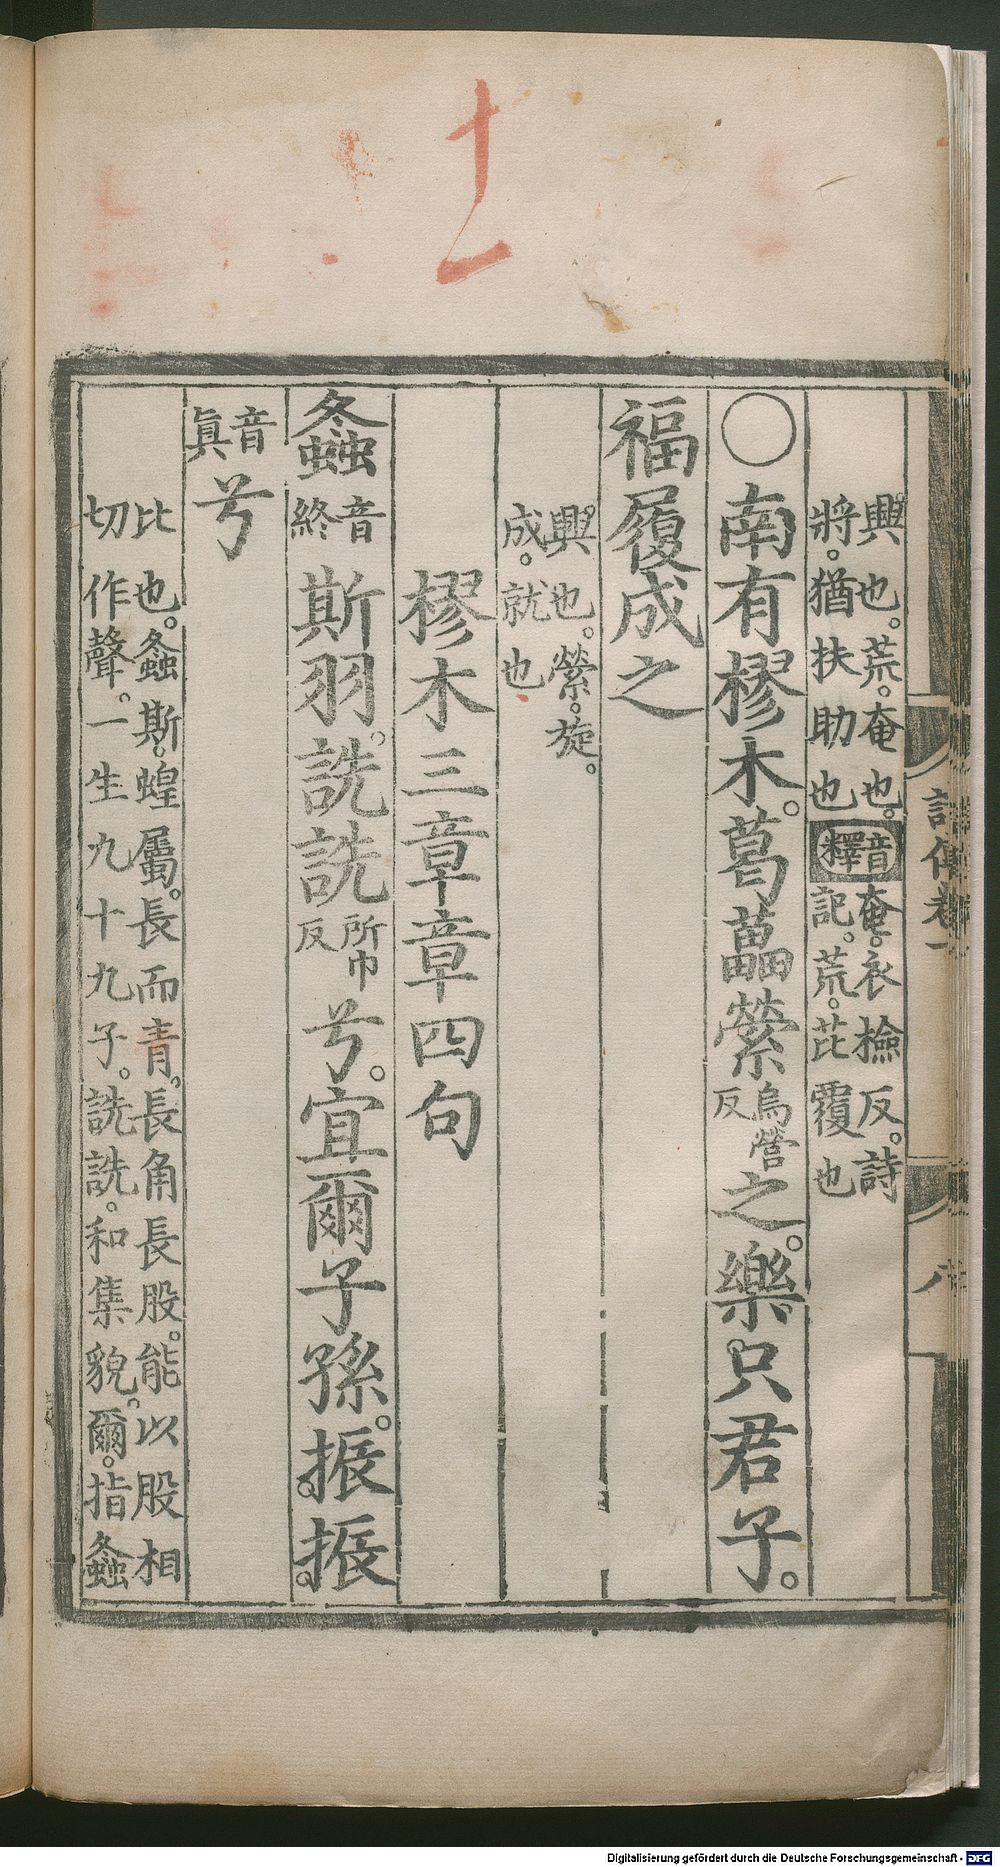 十一
興也。荒。奄也。音釋奄。衣檢反。詩
將。猶扶助也記。荒。芘覆也
○南有樛木。葛藟縈烏營反之。樂只君子。
福履成之
興也。縈。旋。
成。就也
樛木三章章四句
螽音終斯羽。詵詵所巾反兮。宜爾子孫。振振
音眞兮
比也。螽斯。蝗屬。長而青。長角長股。能以股相
切作聲。一生九十九子。詵詵。和集貌。爾。指螽
Digitalisierung gefördert durch die Deutsche Forschungsgemeinschaft - DFG